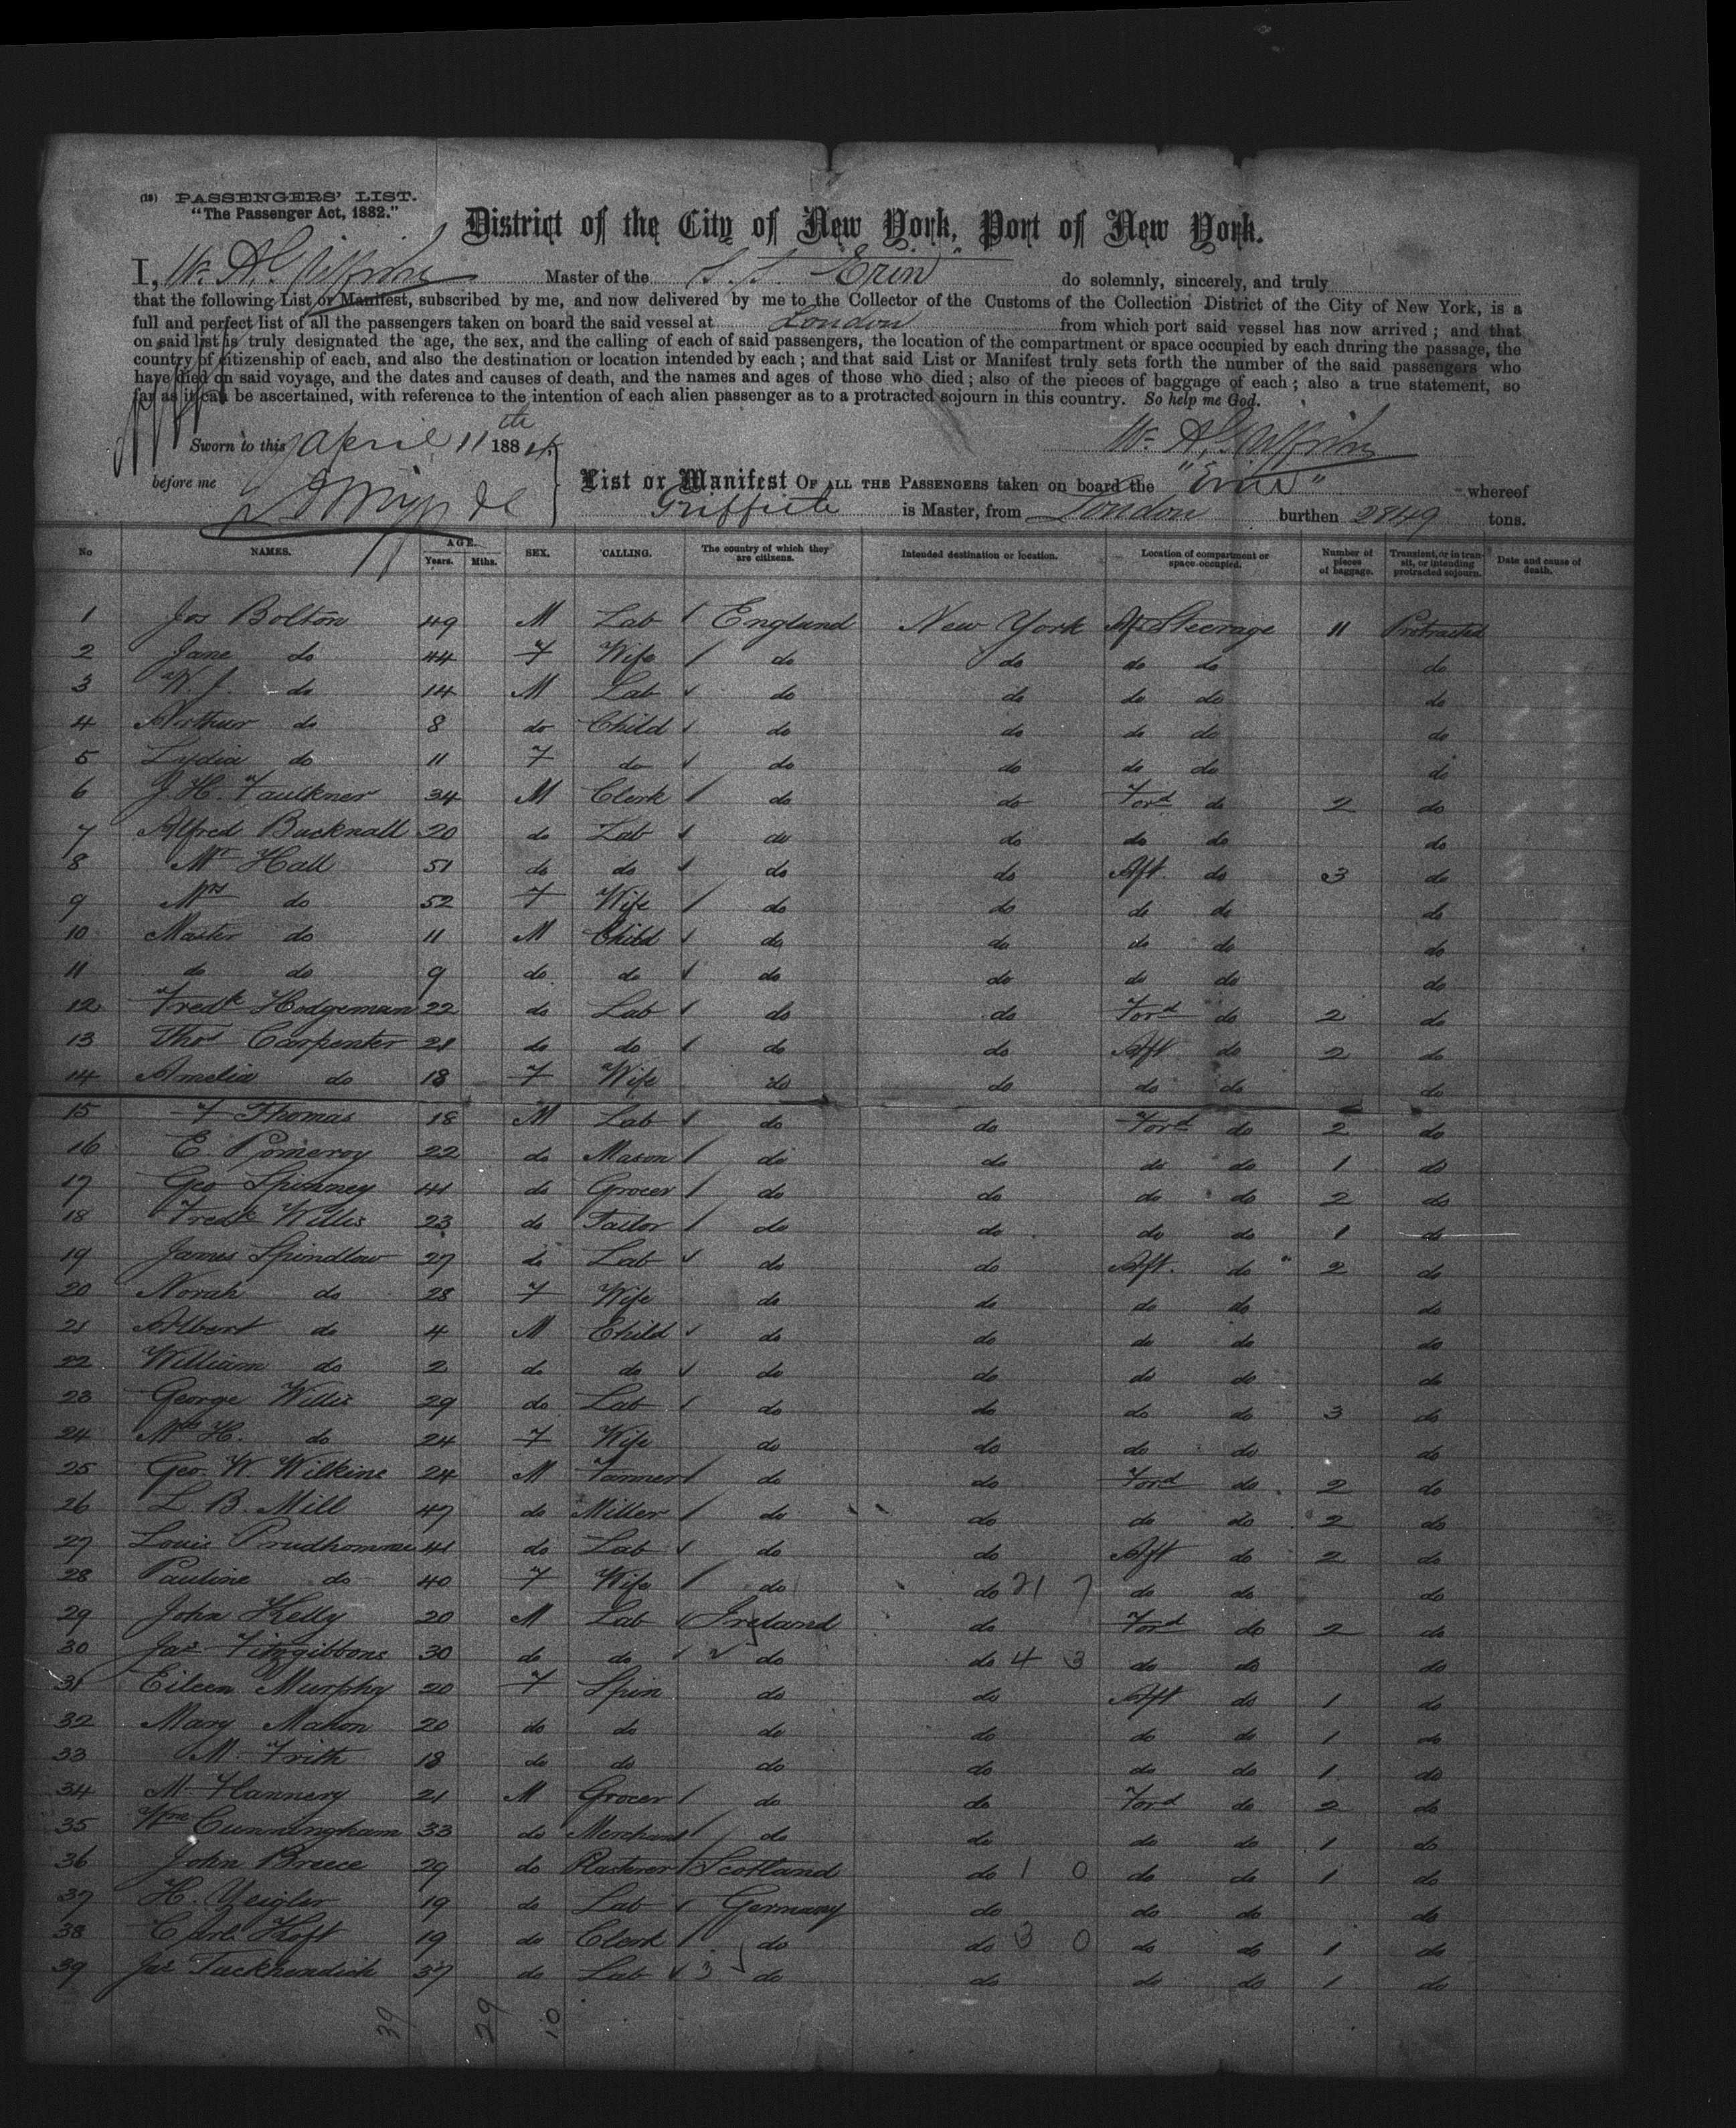 (18) PASSENGERS' LIST.
"The Passenger Act, 1882."
District of the City of New York, Port of New York.
I, W. A. Griffiths Master of the S.S. Erin do solemnly, sincerely, and truly
that the following List or Manifest, subscribed by me, and now delivered by me to the Collector of the Customs of the Collection District of the City of New York, is a
full and perfect list of all the passengers taken on board the said vessel at London from which port said vessel has now arrived; and that
on said list is truly designated the age, the sex, and the calling of each of said passengers, the location of the compartment or space occupied by each during the passage, the
country of citizenship of each, and also the destination or location intended by each; and that said List or Manifest truly sets forth the number of the said passengers who
have died on said voyage, and the dates and causes of death, and the names and ages of those who died; also of the pieces of baggage of each; also a true statement, so
far as it can be ascertained, with reference to the intention of each alien passenger as to a protracted sojourn in this country. So help me God.
Sworn to this April 11th 1884. W. A. Griffiths
before me
List or Manifest OF ALL THE PASSENGERS taken on board the "Erin" whereof
Griffith is Master, from London burthen 2849 tons.
No NAMES. AGE. Years. Mths. SEX. CALLING. The country of which they are citizens. Intended destination or location. Location of compartment or space occupied. Number of pieces of baggage. Transient, or in transit, or intending protracted sojourn. Date and cause of death.
1 Jos Bolton 49 M Lab England New York Aft Steerage 11 Protracted
2 Jane do 44 F Wife do do do do do
3 W. J. do 14 M Lab do do do do do
4 Arthur do 8 do Child do do do do do
5 Lydia do 11 F do do do do do do
6 J. H. Faulkner 34 M Clerk do do Ford do 2 do
7 Alfred Bucknall 20 do Lab do do do do do
8 Mr Hall 51 do do do do Aft. do 3 do
9 Mrs do 52 F Wife do do do do do
10 Master do 11 M Child do do do do do
11 do do 9 do do do do do do do
12 Fredk Hodgeman 22 do Lab do do Ford do 2 do
13 Thos Carpenter 21 do do do do Aft do 2 do
14 Amelia do 18 F Wife do do do do do
15 F Thomas 18 M Lab do do Ford do 2 do
16 E Pomeroy 22 do Mason do do do do 1 do
17 Geo Spinney 41 do Grocer do do do do 2 do
18 Fredk Willis 23 do Tailor do do do do 1 do
19 James Spindlow 27 do Lab do do Aft. do 2 do
20 Norah do 28 F Wife do do do do do
21 Albert do 4 M Child do do do do do
22 William do 2 do do do do do do do
23 George Willis 29 do Lab do do do do 3 do
24 Mrs H. do 24 F Wife do do do do do
25 Geo. W. Wilkine 24 M Farmer do do Ford do 2 do
26 L. B. Mill 47 do Miller do do do do 2 do
27 Louis Prudhomme 41 do Lab do do Aft do 2 do
28 Pauline do 40 F Wife do do 21 7 do do do
29 John Kelly 20 M Lab Ireland do Ford do 2 do
30 Jas Fitzgibbons 30 do do do do 4 3 do do do
31 Eileen Murphy 20 F Spin do do Aft do 1 do
32 Mary Mahon 20 do do do do do do 1 do
33 M. Frith 18 do do do do do do 1 do
34 M Flannery 21 M Grocer do do Ford do 2 do
35 Wm Cunningham 33 do Merchant do do do do 1 do
36 John Breece 29 do Plasterer Scotland do 1 0 do do 1 do
37 H. Zeigler 19 do Lab Germany do do do do
38 Carl Hoft 19 do Clerk do do 3 0 do do 1 do
39 Jas Tackhendich 37 do Lab 3 do do do do 1 do
39 29 10